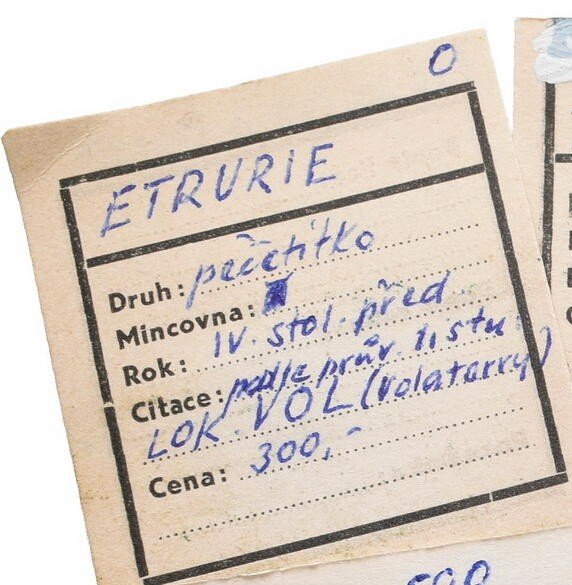 O
ETRURIE
Druh: pečetítko
Mincovna:
Rok: IV. stol. před
Citace: podle prův. listu
LOK. VOL (Volaterry)
Cena: 300,-